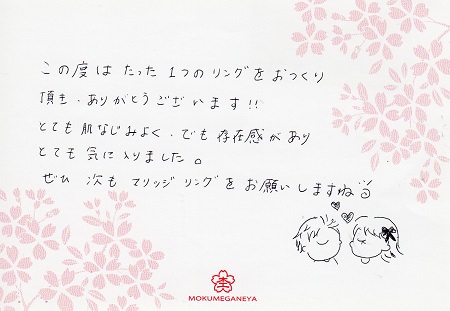 この度は たった 1つの リングを おつくり
頂き、ありがとうございます!!
とても 肌なじみよく、でも 存在感があり
とても 気に入りました。
ぜひ 次も マリッジリングを お願いしますね
MOKUMEGANEYA